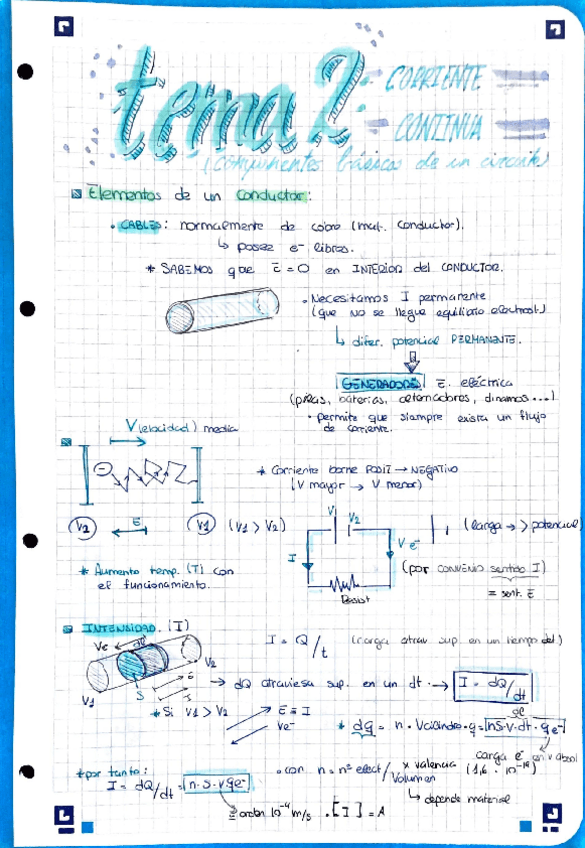 tema 2
CORRIENTE
CONTINUA
(componentes básicos de un circuito)
Elementos de un conductor:
• CABLES: normalmente de cobre (mat. conductor).
↳ posee e⁻ libres.
* SABEMOS que E = 0 en INTERIOR del CONDUCTOR.
• Necesitamos I permanente
(que no se llegue equilibrio electrost.)
↳ difer. potencial PERMANENTE.
GENERADORES E. eléctrica
(pilas, baterías, alternadores, dinamos...)
• permite que siempre exista un flujo
de corriente.
V(elocidad) media
* Corriente borne POSIT → NEGATIVO
(V mayor → V menor)
V2 E V1 (V1 > V2)
V1 V2
(larga → > potencial)
I V e⁻
Resist
(por CONVENIO sentido I)
= sent. E
* Aumenta temp. (T) con
el funcionamiento.
INTENSIDAD. (I)
Ve dl
V2
V1
S
I = Q/t (carga atrav sup. en un tiempo det.)
→ dQ atraviesa sup. en un dt. → I = dQ/dt
* Si V1 > V2
E = I
Ve⁻
* dq = n · Vcilindro · q = nS·v·dt·qe⁻
carga e⁻ en v. absol
(1,6 · 10⁻¹⁹)
* por tanto:
I = dQ/dt = n·S·v·qe⁻
• con n = nº elect/Volumen x valencia
↳ depende material
= orden 10⁻⁴ m/s
• [I] = A